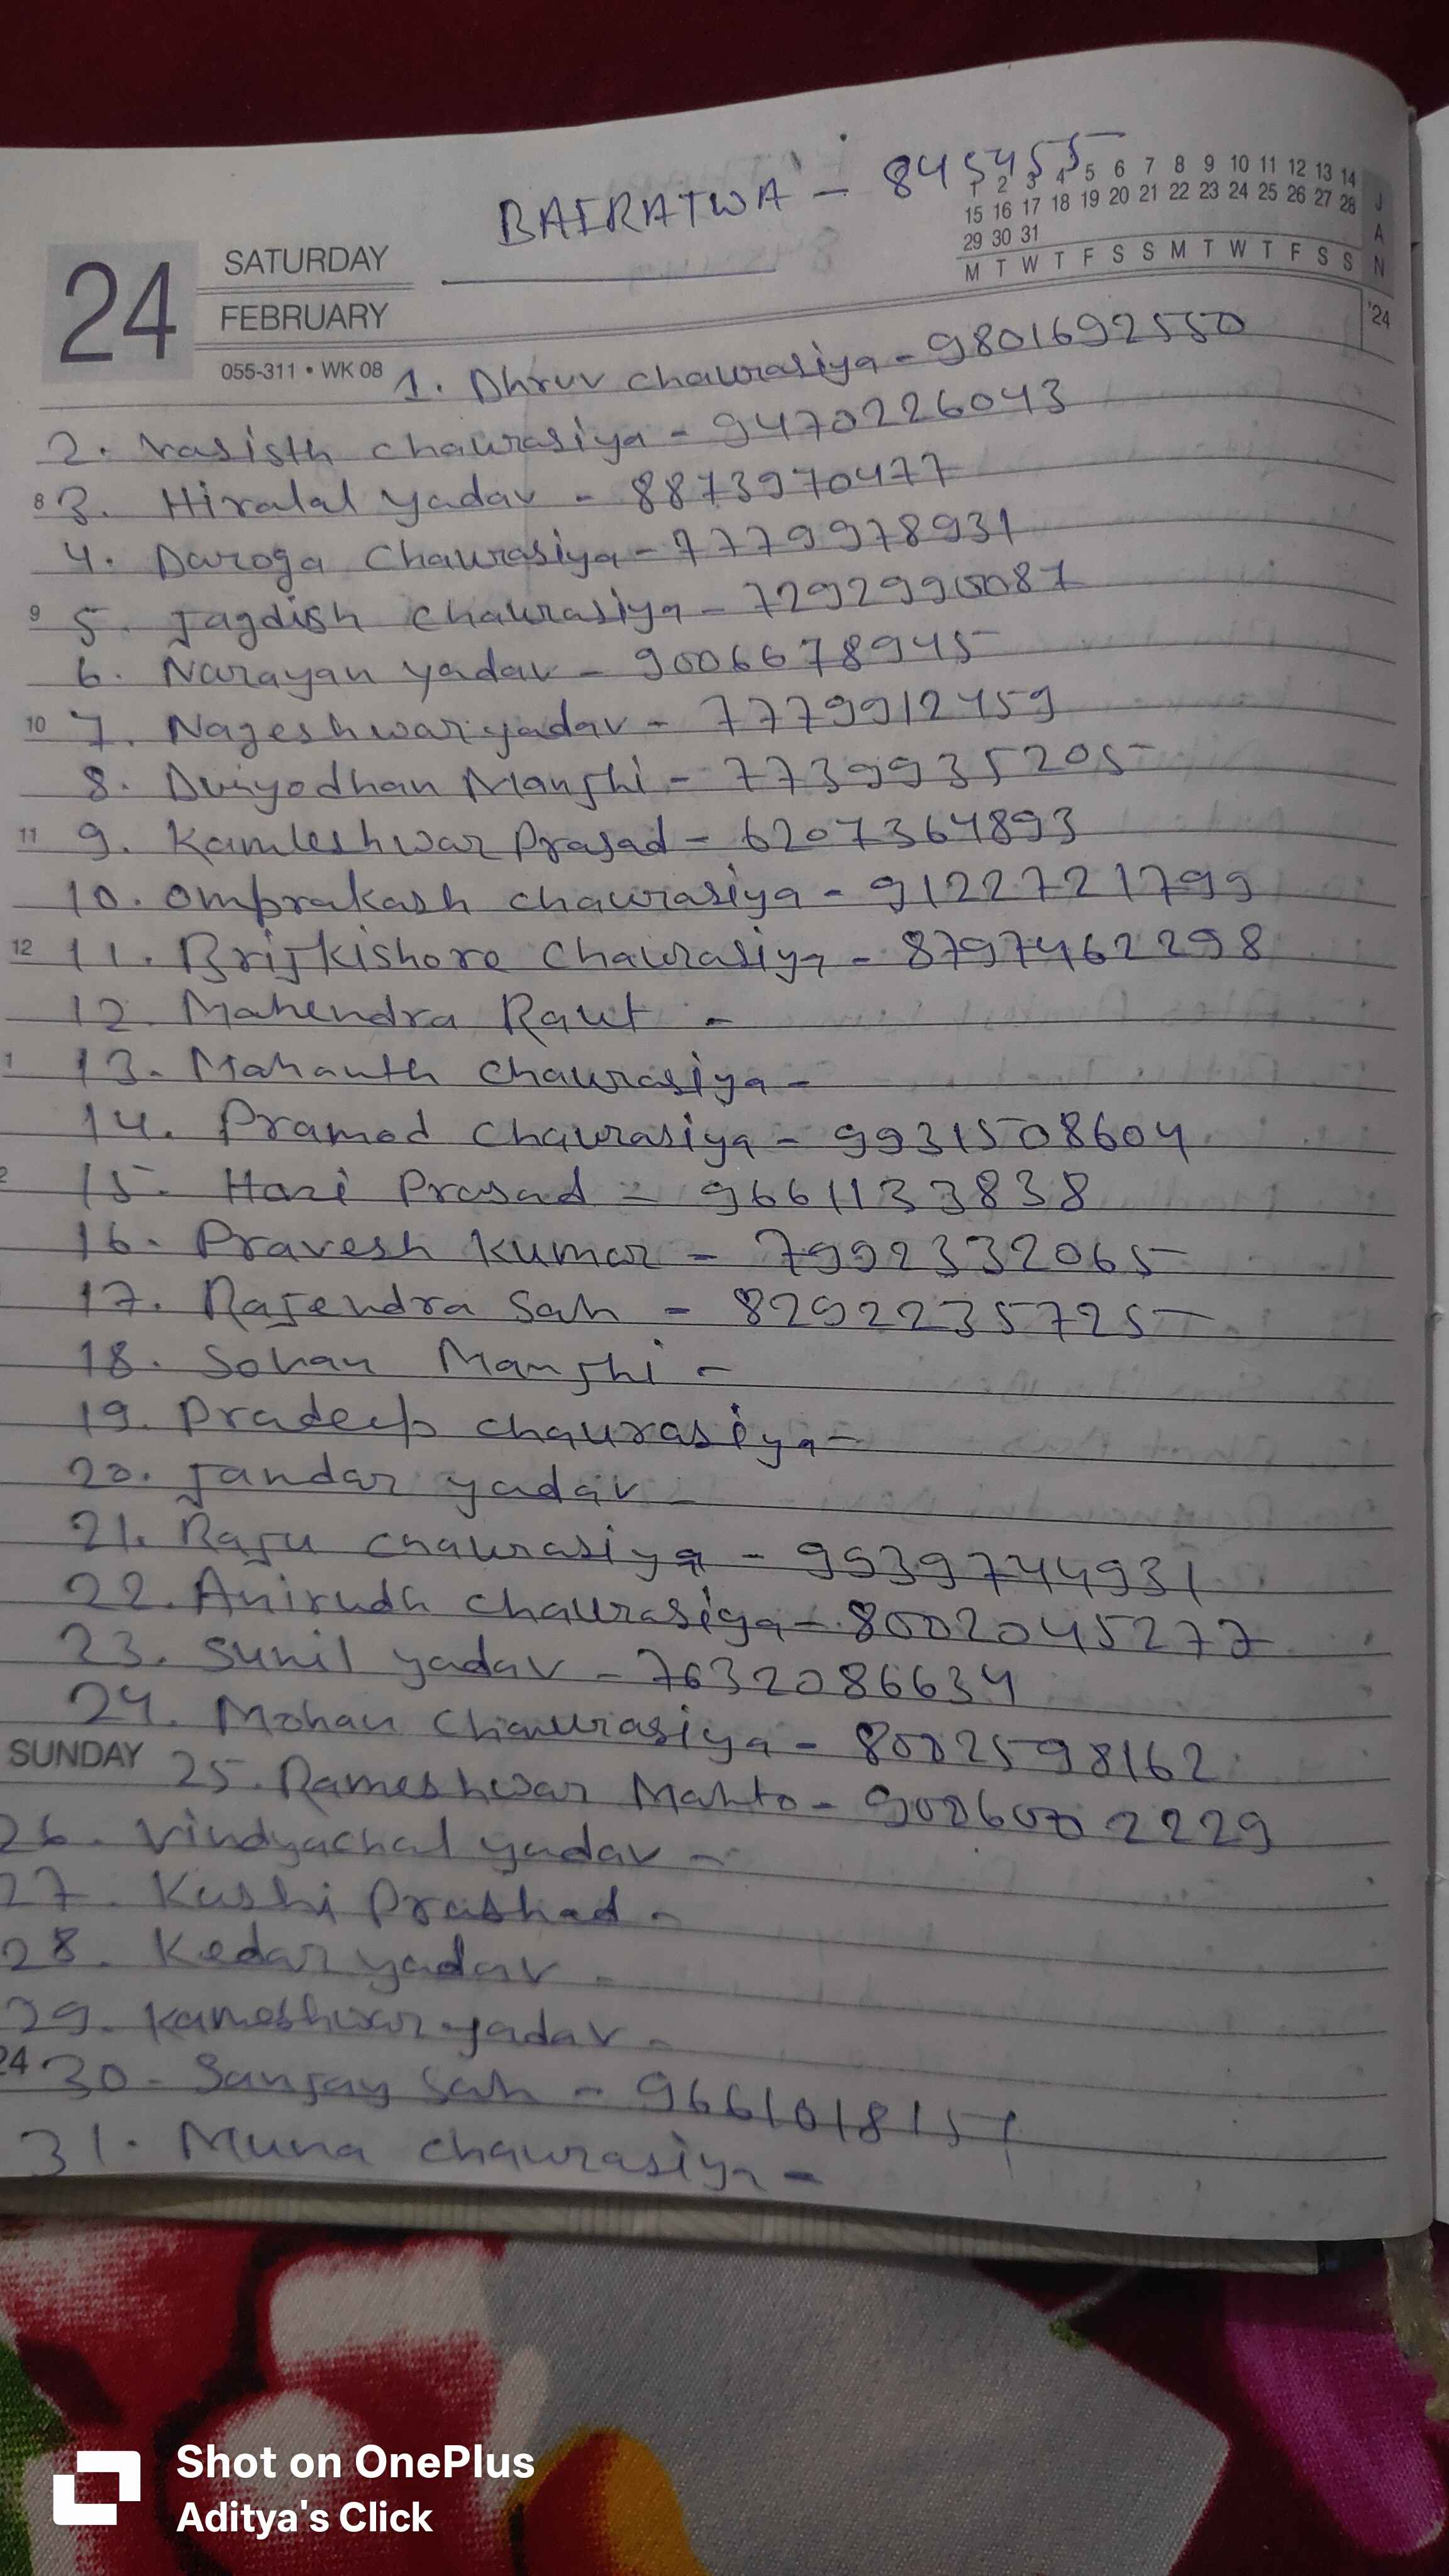 BAIRATWA - 845455
1 2 3 4 5 6 7 8 9 10 11 12 13 14
15 16 17 18 19 20 21 22 23 24 25 26 27 28
29 30 31
M T W T F S S M T W T F S S
JAN
'24
24
SATURDAY
FEBRUARY
055-311 • WK 08
1. Dhruv chaurasiya - 9801692550
2. Vasisth chaurasiya - 9470226043
8
3. Hiralal yadav - 8873970477
4. Daroga Chaurasiya - 7779978931
9
5. Jagdish chaurasiya -
6. Narayan yadav - 9006678945
10
7. Nageshwar yadav - 7779912459
8. Duryodhan Manjhi - 7739935205
11
9. Kamleshwar Prasad - 6207364893
10. Omprakash chaurasiya - 9122721799
12
11. Brijkishore Chaurasiya - 8797462298
12. Mahendra Raut -
1
13. Mahanth Chaurasiya -
14. Pramod Chaurasiya - 9931508604
2
15. Hari Prasad - 9661133838
16. Pravesh Kumar - 7992332065
17. Rajendra Sah - 8292235725
18. Sohan Manjhi -
19. Pradeep chaurasiya -
20. Jandar yadav -
21. Raju chaurasiya - 9939744931
22. Anirudh Chaurasiya - 8002045277
23. Sunil yadav - 7632086634
24. Mohan Chaurasiya - 8002598162
SUNDAY
25. Rameshwar Mahto -
26. Vindyachal yadav -
27. Kashi Prashad -
28. Kedar yadav -
29. Kameshwar yadav -
24
30. Sanjay Sah - 9661018151
31. Muna chaurasiya -
Shot on OnePlus
Aditya's Click